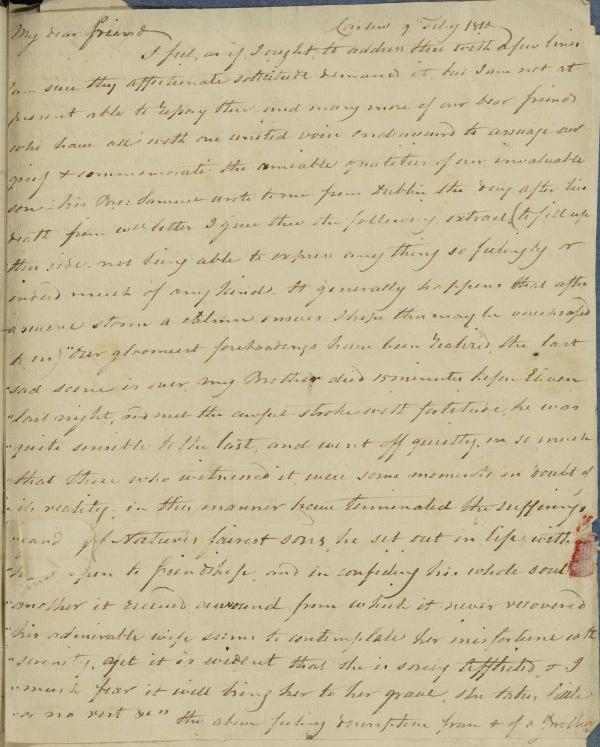 My dear friend
9 Feby 1810
I feel, as if I ought, to address thee with a few lines
I am sure thy affectionate solicitude demands it but I am not at
present able to repay thee and many more of our dear friends
who have all with one united voice endeavoured to assuage our
grief & commemorate the amiable qualities of our invaluable
son - his Bro: Samuel wrote to me from Dublin the day after his
death from wch letter I give thee the following extract (to fill up
this side - not being able to express any thing so feelingly or
indeed much of any kind - It generally happens that after
a severe storm a calm ensues I hope this may be
to us) "Our gloomiest forebodings have been realized, the last
"sad scene is over, my Brother died 15 minutes before Eleven
"last night, and met the awful stroke with fortitude, he was
"quite sensible to the last, and went off quietly, in so much
"that those who witnessed it were some moments in doubt of
"its reality; in this manner have terminated the sufferings
of Natures fairest sons, he set out in life with
open to friendship, and in confiding his whole soul
"another it received a wound from which it never recovered
"his admirable wife seems to contemplate her misfortune with
"serenity, yet it is evident that she is sorely afflicted, & I
"much fear it will bring her to her grave, she takes little
"or no rest &c" the above feeling description from & of a Brother